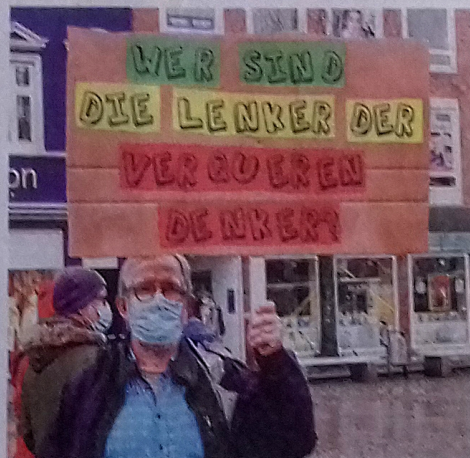 WER SIND
DIE LENKER DER
VERQUEREN
DENKER?
on